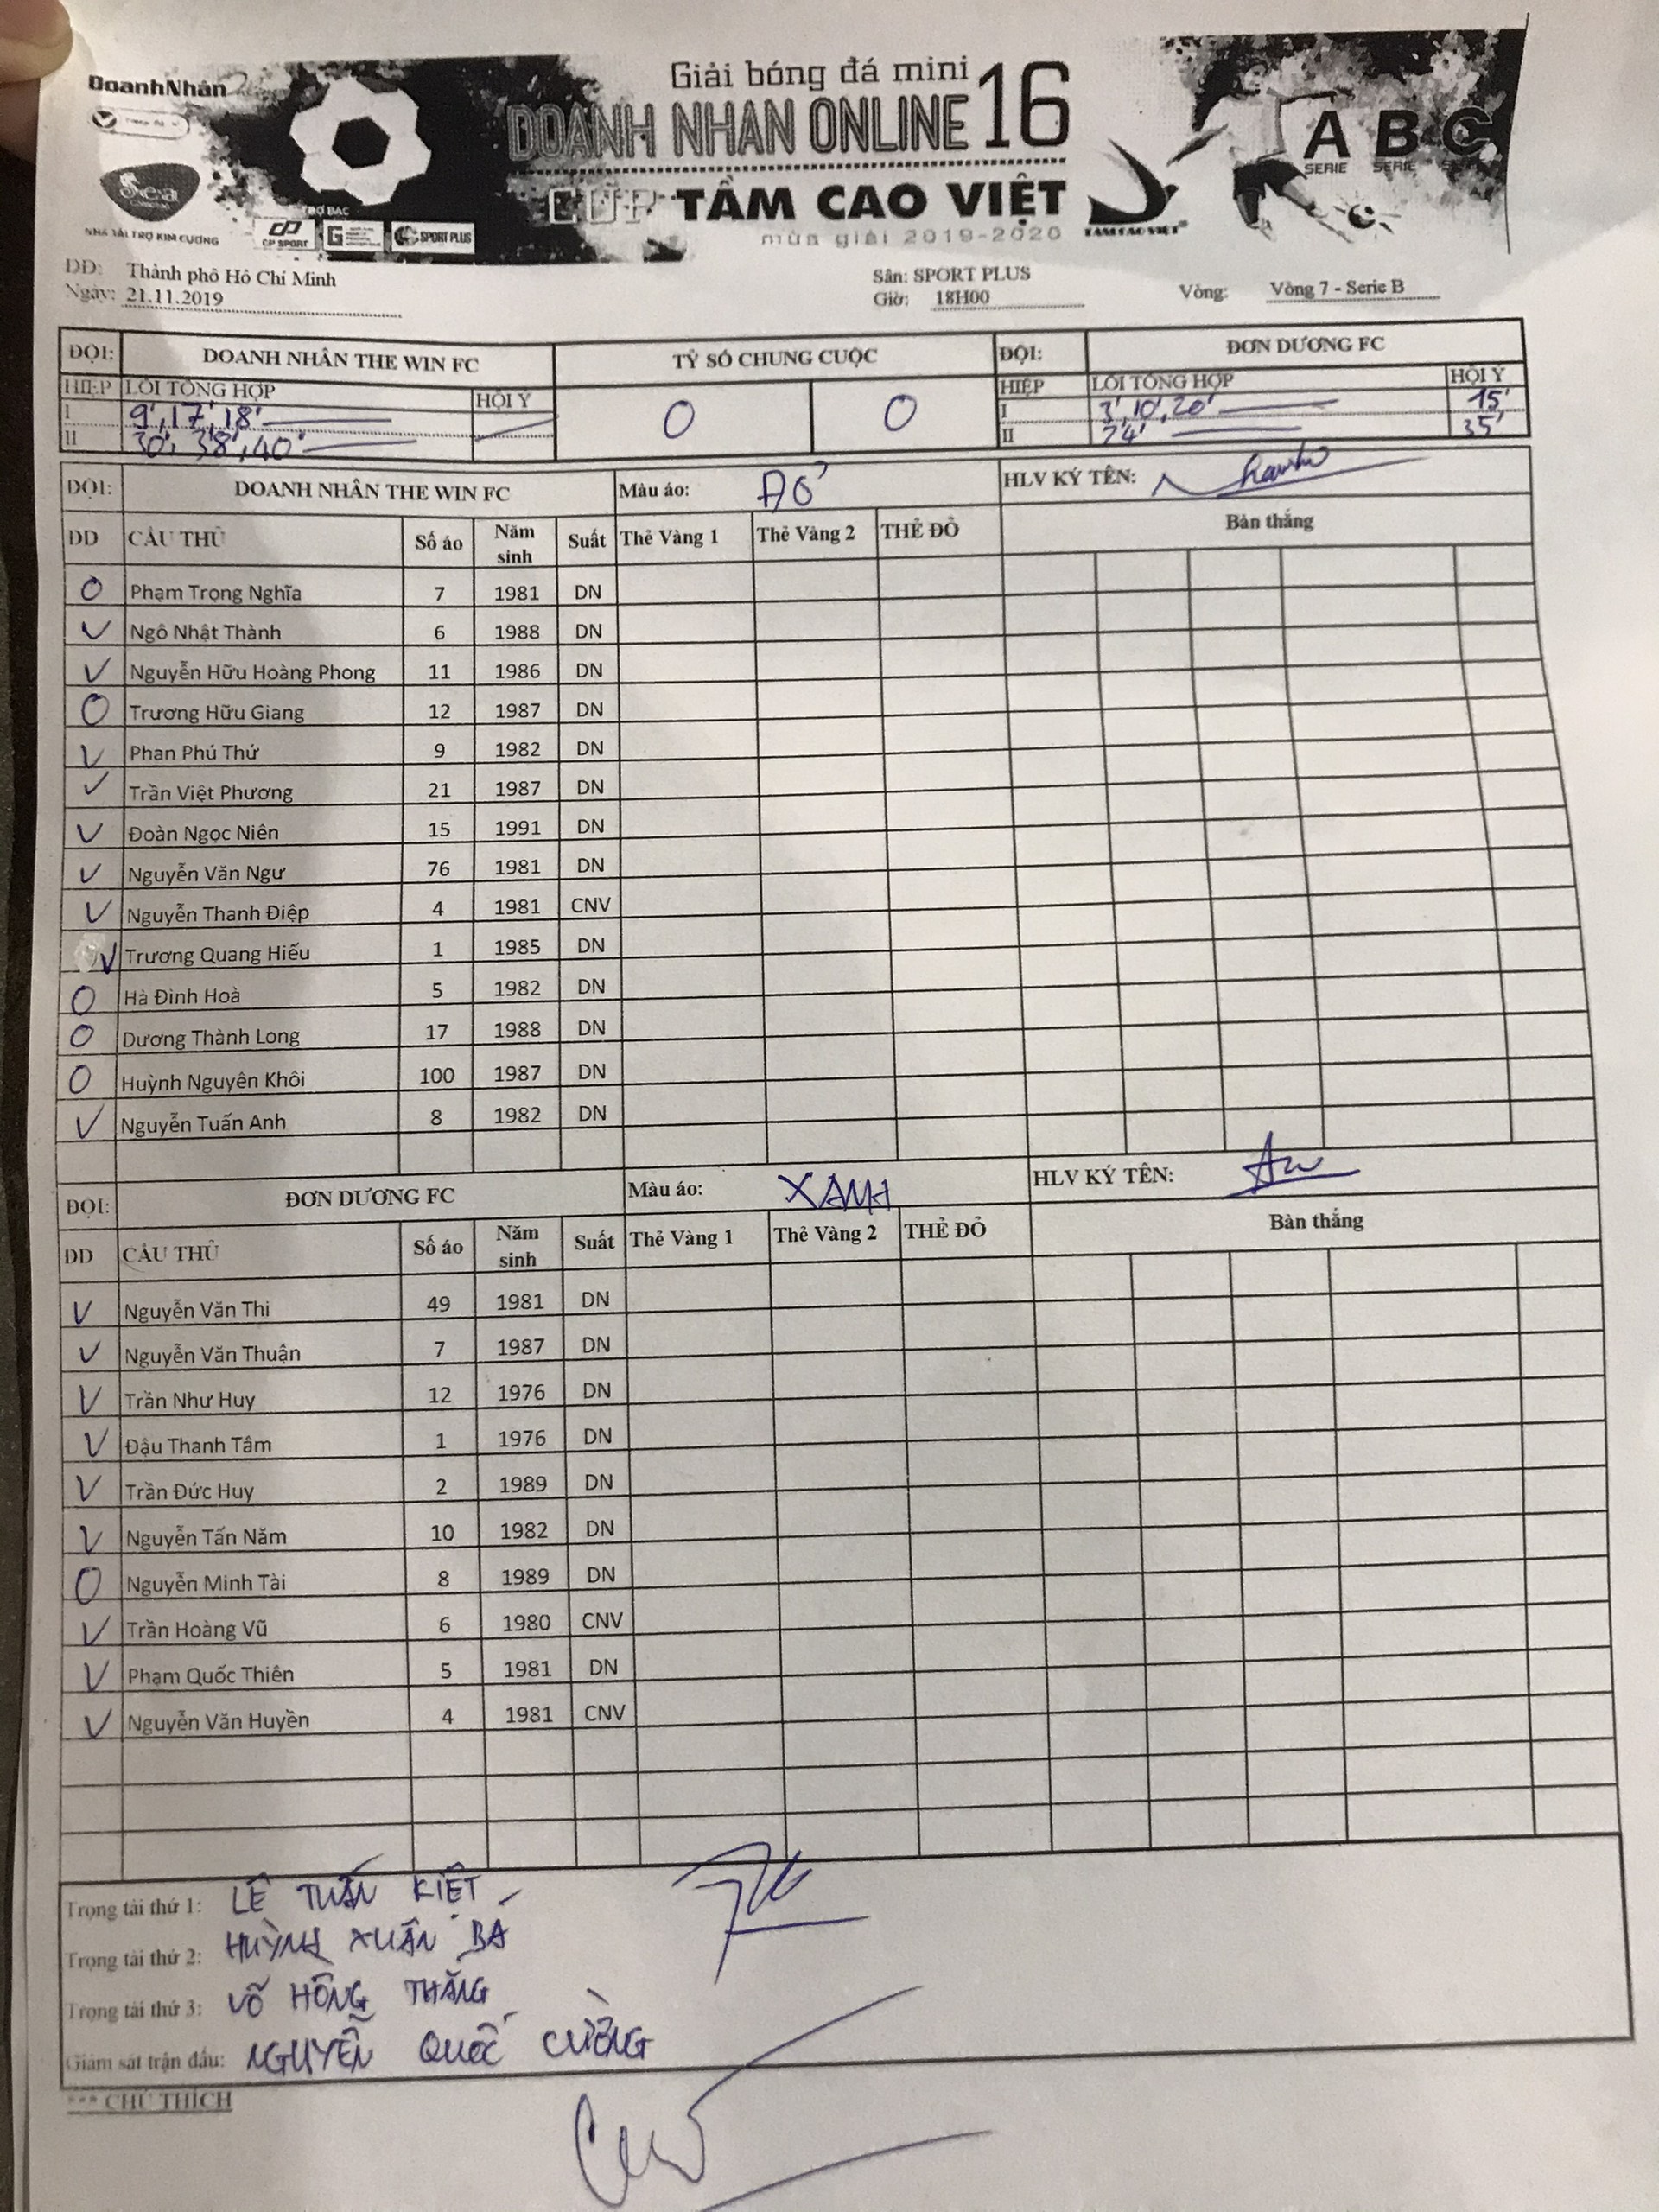 DoanhNhân
Giải bóng đá mini
DOANH NHAN ONLINE 16
CÚP TẦM CAO VIỆT
mùa giải 2019-2020
Sea
NHÀ TÀI TRỢ KIM CƯƠNG
CP SPORT
SPORT PLUS
TẦM CAO VIỆT
A B C
SERIE SERIE
DĐ: Thành phố Hồ Chí Minh Sân: SPORT PLUS
Ngày: 21.11.2019 Giờ: 18H00 Vòng: Vòng 7 - Serie B
ĐỘI: DOANH NHÂN THE WIN FC TỶ SỐ CHUNG CUỘC ĐỘI: ĐƠN DƯƠNG FC
HIỆP LỖI TỔNG HỢP HỘI Ý 0 0 HIỆP LỖI TỔNG HỢP HỘI Ý
I 9', 17', 18' I 3', 10', 20' 15'
II 30', 38', 40' II 24' 35'
ĐỘI: DOANH NHÂN THE WIN FC Màu áo: ĐỎ HLV KÝ TÊN:
DD CẦU THỦ Số áo Năm sinh Suất Thẻ Vàng 1 Thẻ Vàng 2 THẺ ĐỎ Bàn thắng
O Phạm Trọng Nghĩa 7 1981 DN
✓ Ngô Nhật Thành 6 1988 DN
✓ Nguyễn Hữu Hoàng Phong 11 1986 DN
O Trương Hữu Giang 12 1987 DN
✓ Phan Phú Thứ 9 1982 DN
✓ Trần Việt Phương 21 1987 DN
✓ Đoàn Ngọc Niên 15 1991 DN
✓ Nguyễn Văn Ngư 76 1981 DN
✓ Nguyễn Thanh Điệp 4 1981 CNV
✓ Trương Quang Hiếu 1 1985 DN
O Hà Đình Hoà 5 1982 DN
O Dương Thành Long 17 1988 DN
O Huỳnh Nguyên Khôi 100 1987 DN
✓ Nguyễn Tuấn Anh 8 1982 DN
ĐỘI: ĐƠN DƯƠNG FC Màu áo: XANH HLV KÝ TÊN:
DD CẦU THỦ Số áo Năm sinh Suất Thẻ Vàng 1 Thẻ Vàng 2 THẺ ĐỎ Bàn thắng
✓ Nguyễn Văn Thi 49 1981 DN
✓ Nguyễn Văn Thuận 7 1987 DN
✓ Trần Như Huy 12 1976 DN
✓ Đậu Thanh Tâm 1 1976 DN
✓ Trần Đức Huy 2 1989 DN
✓ Nguyễn Tấn Năm 10 1982 DN
O Nguyễn Minh Tài 8 1989 DN
✓ Trần Hoàng Vũ 6 1980 CNV
✓ Phạm Quốc Thiên 5 1981 DN
✓ Nguyễn Văn Huyền 4 1981 CNV
Trọng tài thứ 1: LÊ TUẤN KIỆT
Trọng tài thứ 2: HUỲNH XUÂN BÁ
Trọng tài thứ 3: VÕ HỒNG THẮNG
Giám sát trận đấu: NGUYỄN QUỐC CƯỜNG
*** CHÚ THÍCH